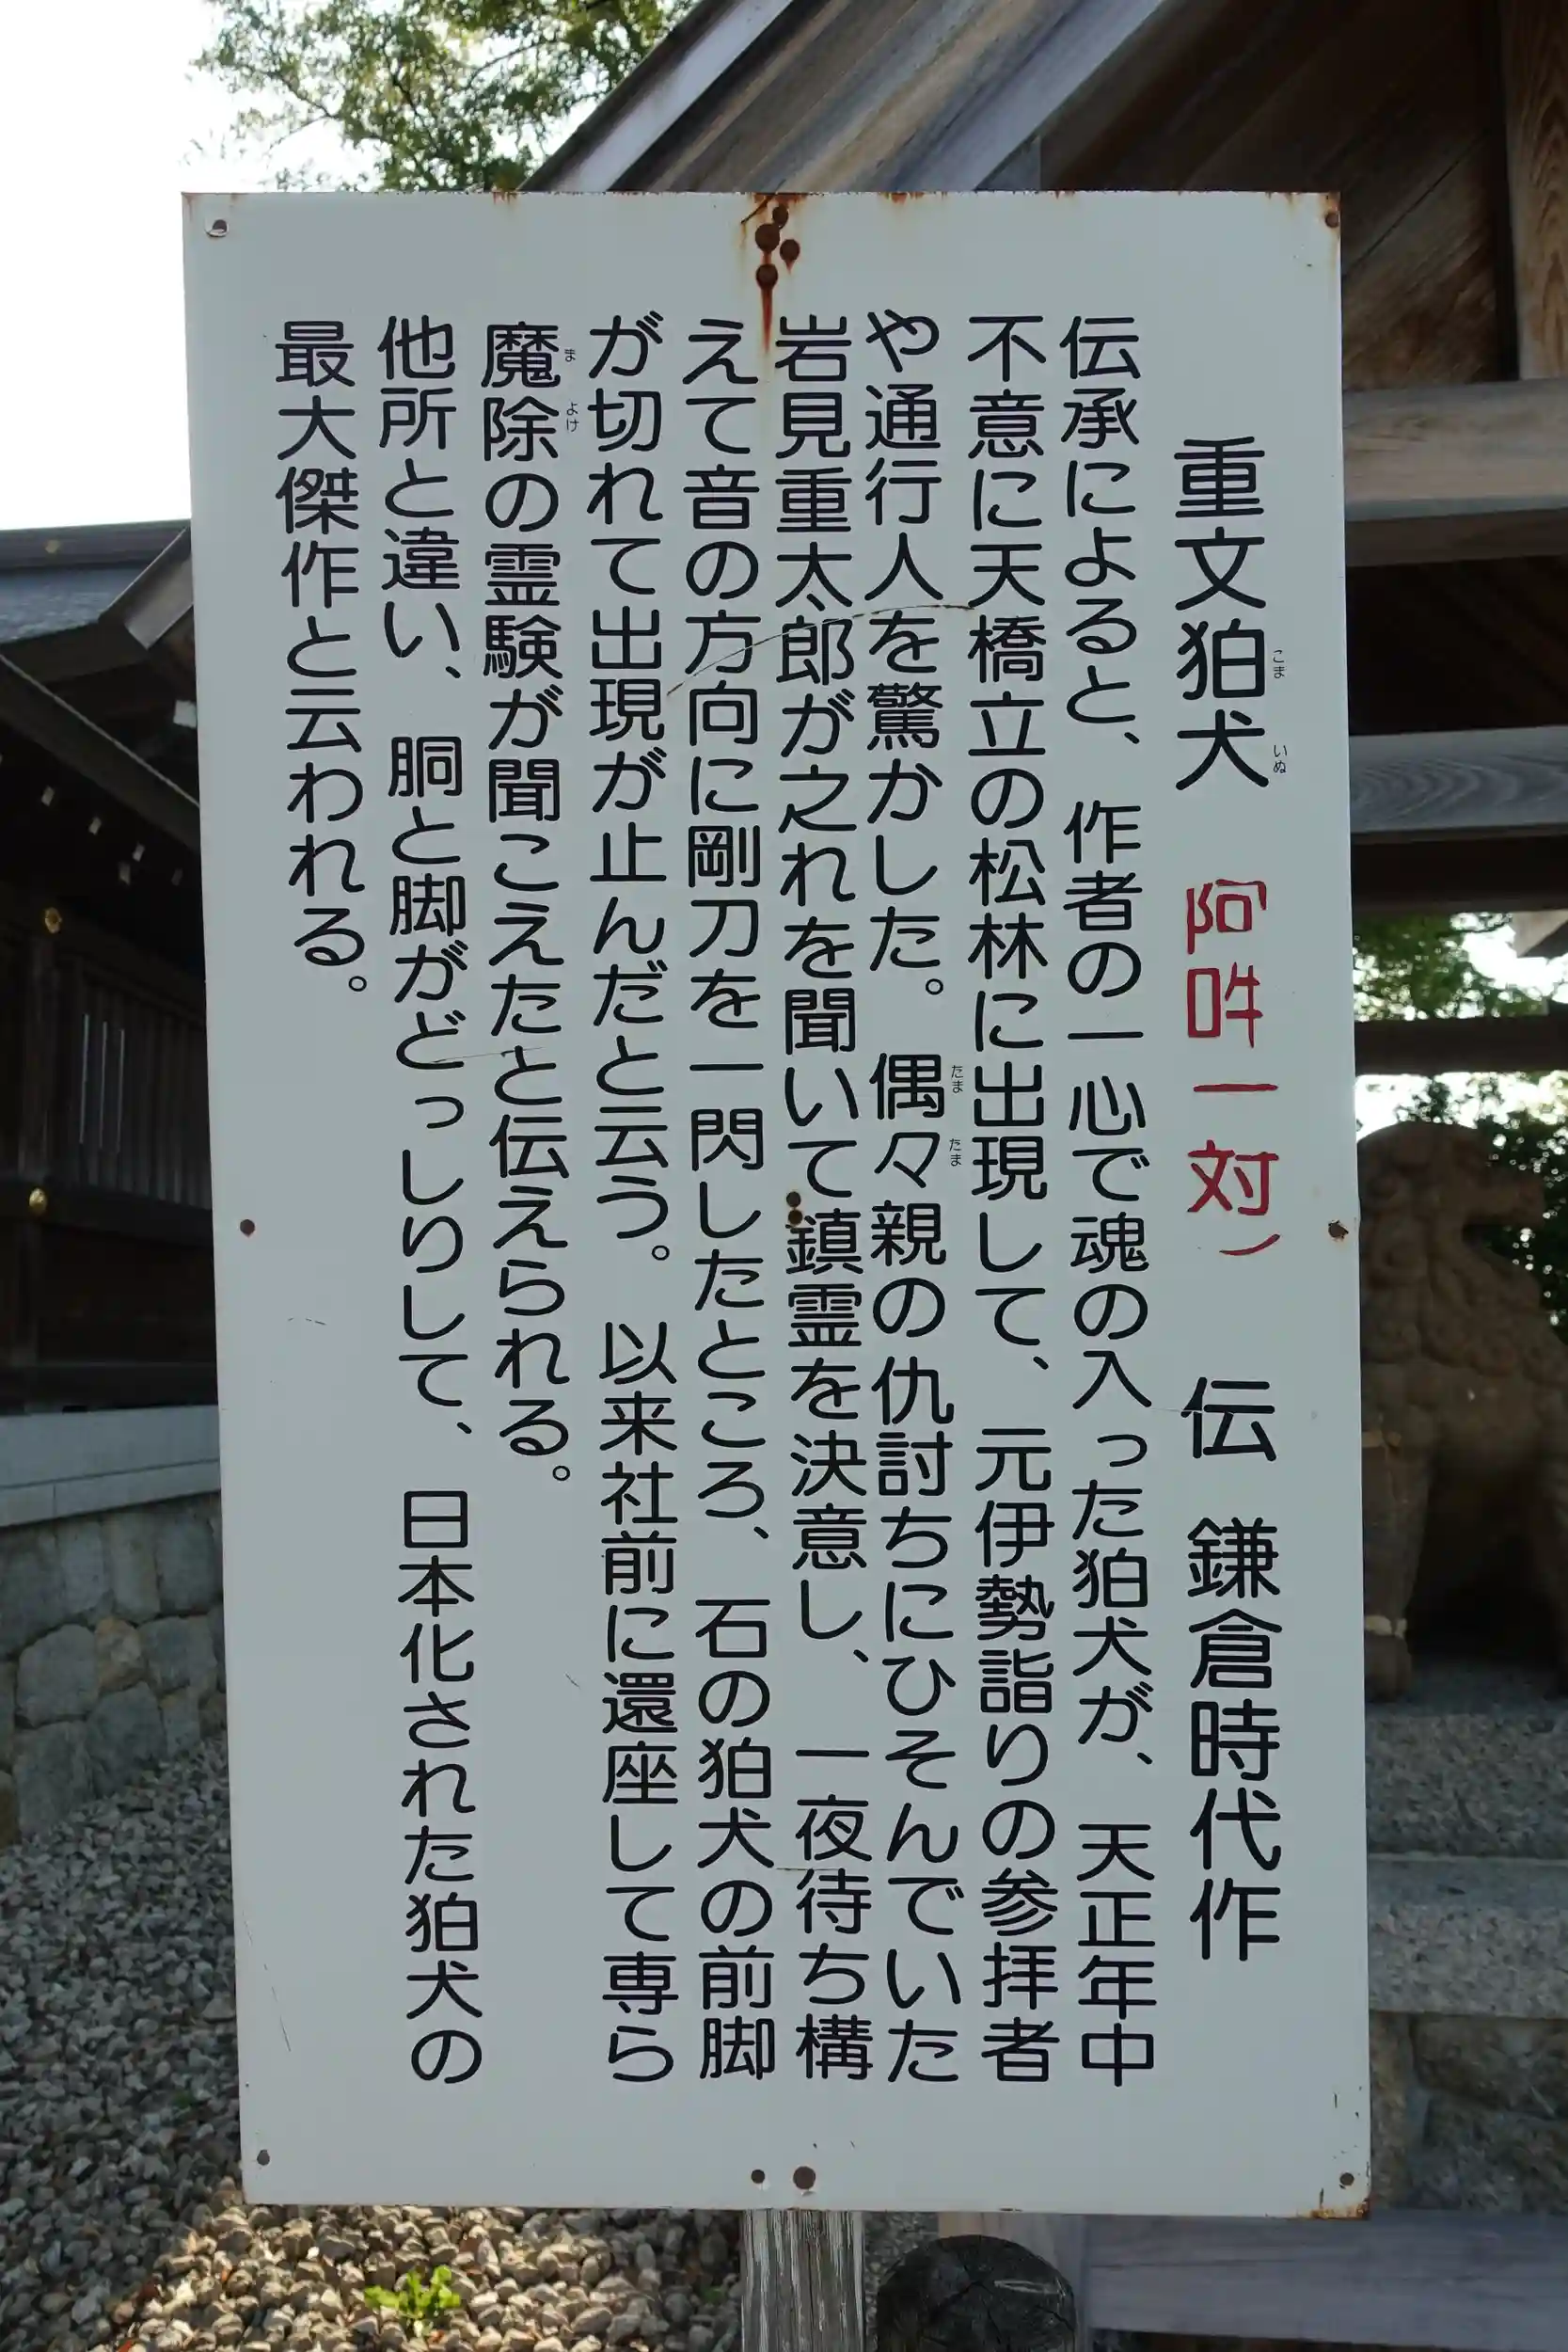 重文狛犬 阿吽一対) 伝 鎌倉時代作
こま いぬ
伝承によると、作者の一心で魂の入った狛犬が、天正年中
不意に天橋立の松林に出現して、元伊勢詣りの参拝者
や通行人を驚かした。偶々親の仇討ちにひそんでいた
たま たま
岩見重太郎が之れを聞いて鎮霊を決意し、一夜待ち構
えて音の方向に剛刀を一閃したところ、石の狛犬の前脚
が切れて出現が止んだと云う。以来社前に還座して専ら
魔除の霊験が聞こえたと伝えられる。
ま よけ
他所と違い、胴と脚がどっしりして、日本化された狛犬の
最大傑作と云われる。